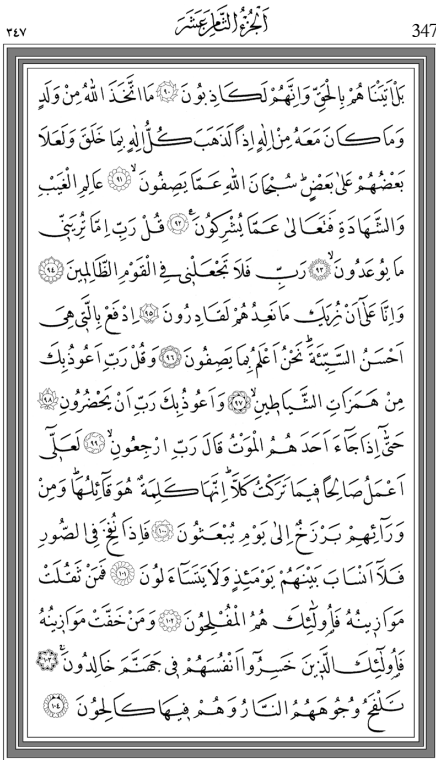 ٣٤٧ اَلْجُزْءُ الثَّامِنَ عَشَرَ 347
بَلْ اَتَيْنَاهُمْ بِالْحَقِّ وَاِنَّهُمْ لَكَاذِبُونَ ﴿٩٠﴾ مَا اتَّخَذَ اللّٰهُ مِنْ وَلَدٍ
وَمَا كَانَ مَعَهُ مِنْ اِلٰهٍ اِذًا لَذَهَبَ كُلُّ اِلٰهٍ بِمَا خَلَقَ وَلَعَلَا
بَعْضُهُمْ عَلٰى بَعْضٍ سُبْحَانَ اللّٰهِ عَمَّا يَصِفُونَ ﴿٩١﴾ عَالِمِ الْغَيْبِ
وَالشَّهَادَةِ فَتَعَالٰى عَمَّا يُشْرِكُونَ ﴿٩٢﴾ قُلْ رَبِّ اِمَّا تُرِيَنّٖى
مَا يُوعَدُونَ ﴿٩٣﴾ رَبِّ فَلَا تَجْعَلْنٖى فِى الْقَوْمِ الظَّالِمٖينَ ﴿٩٤﴾
وَاِنَّا عَلٰٓى اَنْ نُرِيَكَ مَا نَعِدُهُمْ لَقَادِرُونَ ﴿٩٥﴾ اِدْفَعْ بِالَّتٖى هِىَ
اَحْسَنُ السَّيِّئَةَ نَحْنُ اَعْلَمُ بِمَا يَصِفُونَ ﴿٩٦﴾ وَقُلْ رَبِّ اَعُوذُ بِكَ
مِنْ هَمَزَاتِ الشَّيَاطٖينِ ﴿٩٧﴾ وَاَعُوذُ بِكَ رَبِّ اَنْ يَحْضُرُونِ ﴿٩٨﴾
حَتّٰٓى اِذَا جَٓاءَ اَحَدَهُمُ الْمَوْتُ قَالَ رَبِّ ارْجِعُونِ ﴿٩٩﴾ لَعَلّٖٓى
اَعْمَلُ صَالِحًا فٖيمَا تَرَكْتُ كَلَّا اِنَّهَا كَلِمَةٌ هُوَ قَٓائِلُهَا وَمِنْ
وَرَٓائِهِمْ بَرْزَخٌ اِلٰى يَوْمِ يُبْعَثُونَ ﴿١٠٠﴾ فَاِذَا نُفِخَ فِى الصُّورِ
فَلَٓا اَنْسَابَ بَيْنَهُمْ يَوْمَئِذٍ وَلَا يَتَسَٓاءَلُونَ ﴿١٠١﴾ فَمَنْ ثَقُلَتْ
مَوَازٖينُهُ فَاُولٰٓئِكَ هُمُ الْمُفْلِحُونَ ﴿١٠٢﴾ وَمَنْ خَفَّتْ مَوَازٖينُهُ
فَاُولٰٓئِكَ الَّذٖينَ خَسِرُٓوا اَنْفُسَهُمْ فٖى جَهَنَّمَ خَالِدُونَ ﴿١٠٣﴾
تَلْفَحُ وُجُوهَهُمُ النَّارُ وَهُمْ فٖيهَا كَالِحُونَ ﴿١٠٤﴾